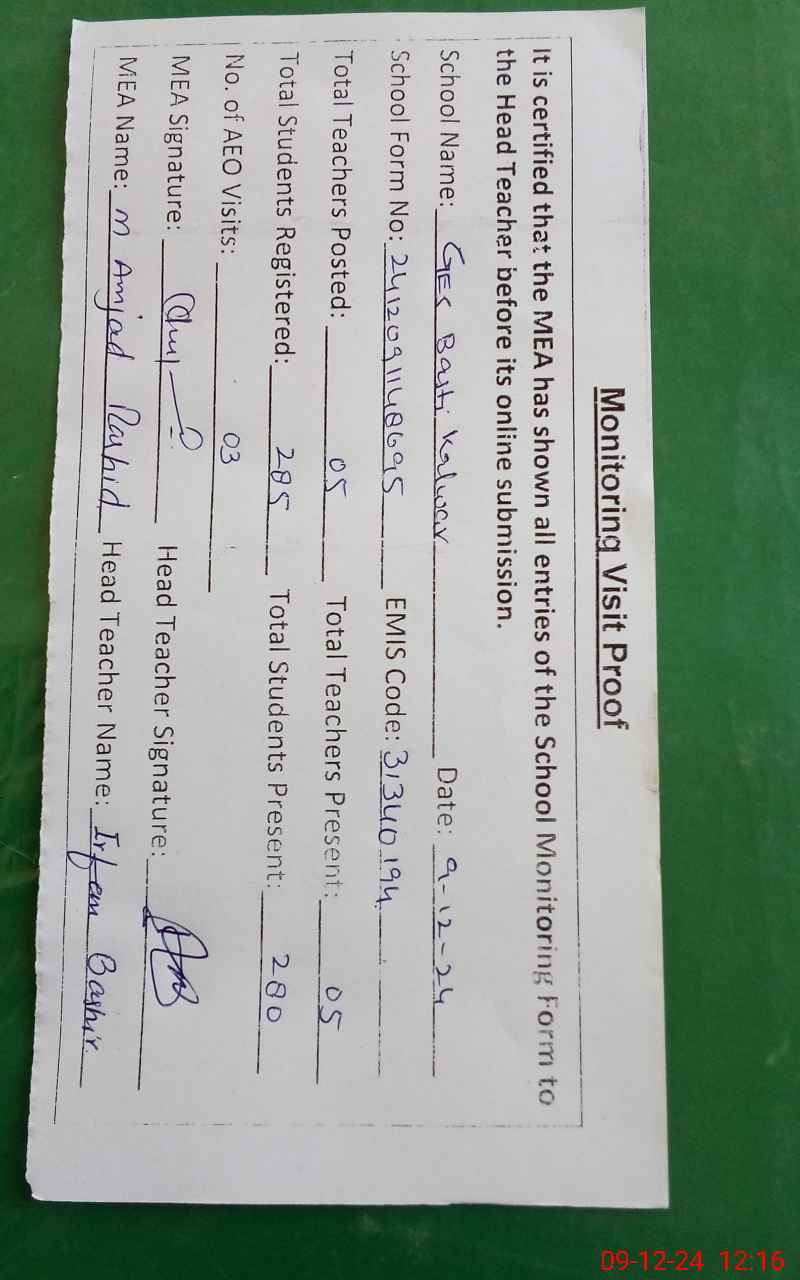 Monitoring Visit Proof
It is certified that the MEA has shown all entries of the School Monitoring Form to
the Head Teacher before its online submission.
School Name: GES Basti Kalwar Date: 9-12-24
School Form No: 2412091148695 EMIS Code: 31340194
Total Teachers Posted: 05 Total Teachers Present: 05
Total Students Registered: 285 Total Students Present: 280
No. of AEO Visits: 03
MEA Signature: Head Teacher Signature:
MEA Name: M Amjad Rashid Head Teacher Name: Irfan Bashir
09-12-24 12:16